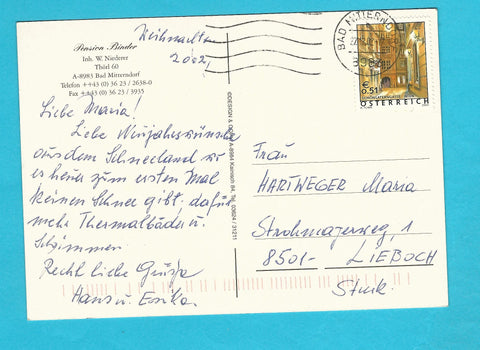 Pension Binder
Inh. W. Niederer
Thörl 60
A-8983 Bad Mitterndorf
Telefon ++43 (0) 36 23 / 2638-0
Fax ++43 (0) 36 23 / 3935
Weihnachten
2002
Liebe Maria!
Liebe Neujahrswünsche
aus dem Schneeland wo
es heuer zum ersten Mal
keinen Schnee gibt. dafür
mehr Thermalbäder u.
Schwimmen
Recht liebe Grüße
Hans u. Erika.
BAD MITTERNDO
8983
€ 0.51
ÖSTERREICH
A-8984 Kainisch 84, Tel. 03624 / 31211
Frau
HARTWEGER Maria
Strohmajerweg 1
8501- LIEBOCH
Stmk.